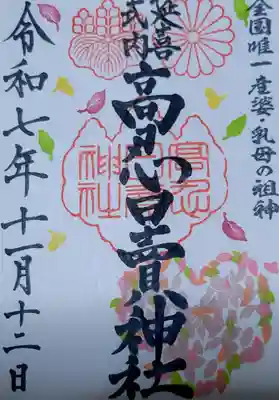 全国唯一 産婆・乳母の祖神
延喜
式内
高忍日賣神社
令和七年十一月十二日